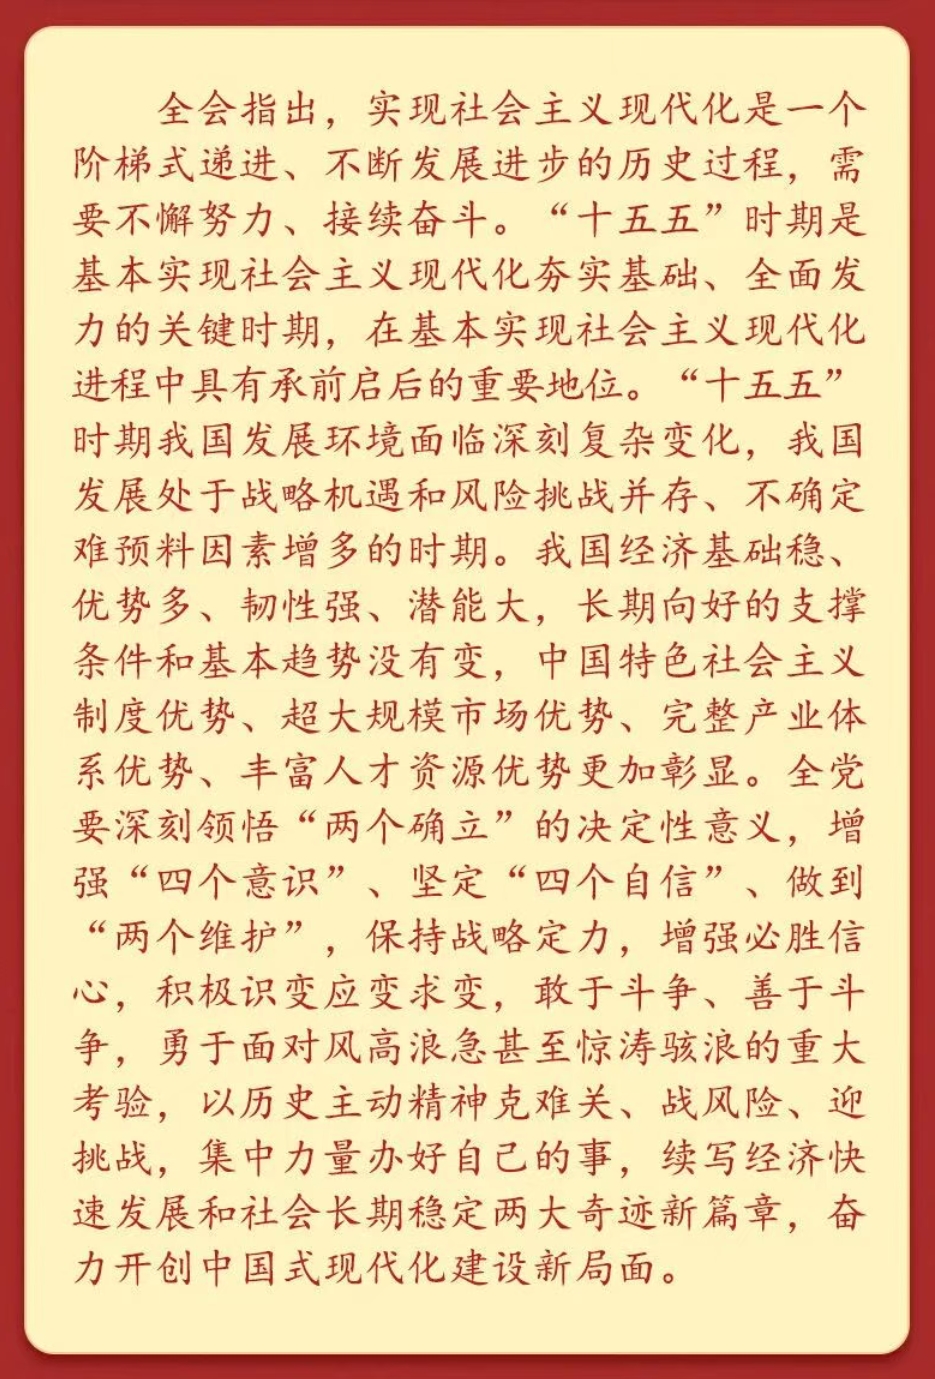 全会指出，实现社会主义现代化是一个
阶梯式递进、不断发展进步的历史过程，需
要不懈努力、接续奋斗。“十五五”时期是
基本实现社会主义现代化夯实基础、全面发
力的关键时期，在基本实现社会主义现代化
进程中具有承前启后的重要地位。“十五五”
时期我国发展环境面临深刻复杂变化，我国
发展处于战略机遇和风险挑战并存、不确定
难预料因素增多的时期。我国经济基础稳、
优势多、韧性强、潜能大，长期向好的支撑
条件和基本趋势没有变，中国特色社会主义
制度优势、超大规模市场优势、完整产业体
系优势、丰富人才资源优势更加彰显。全党
要深刻领悟“两个确立”的决定性意义，增
强“四个意识”、坚定“四个自信”、做到
“两个维护”，保持战略定力，增强必胜信
心，积极识变应变求变，敢于斗争、善于斗
争，勇于面对风高浪急甚至惊涛骇浪的重大
考验，以历史主动精神克难关、战风险、迎
挑战，集中力量办好自己的事，续写经济快
速发展和社会长期稳定两大奇迹新篇章，奋
力开创中国式现代化建设新局面。